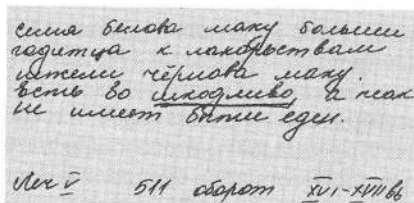 семя белова маку больши
годитца к лакорьствам
нежели чёрнова маку.
есть во шкодливо, а такъ
не имеет быти еден.
Леч V 511 оборот XVI-XVII вв